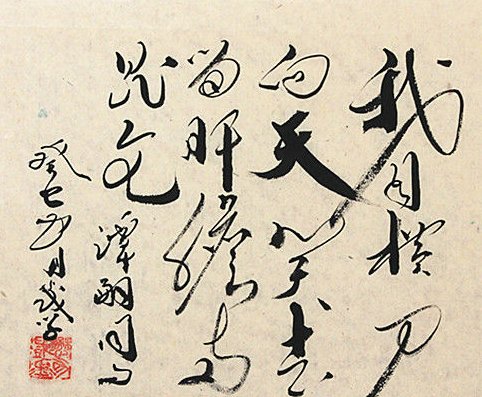 我自横刀
向天笑去
留肝膽两
昆仑
譚嗣同句
癸巳 月